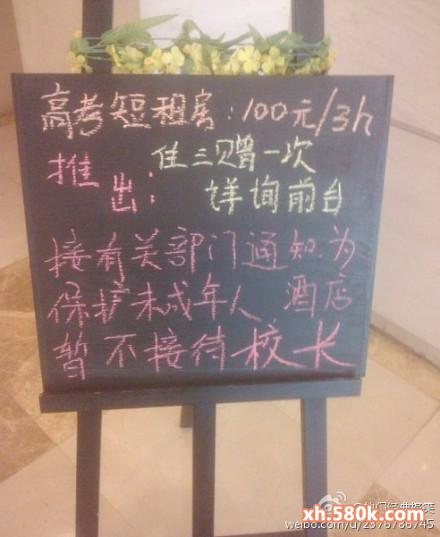 高考短租房:100元/3h
推出:
住三赠一次
详询前台
接有关部门通知为
保护未成年人,酒店
暂不接待校长
xh.580k.com
weibo.com/u/2376786745